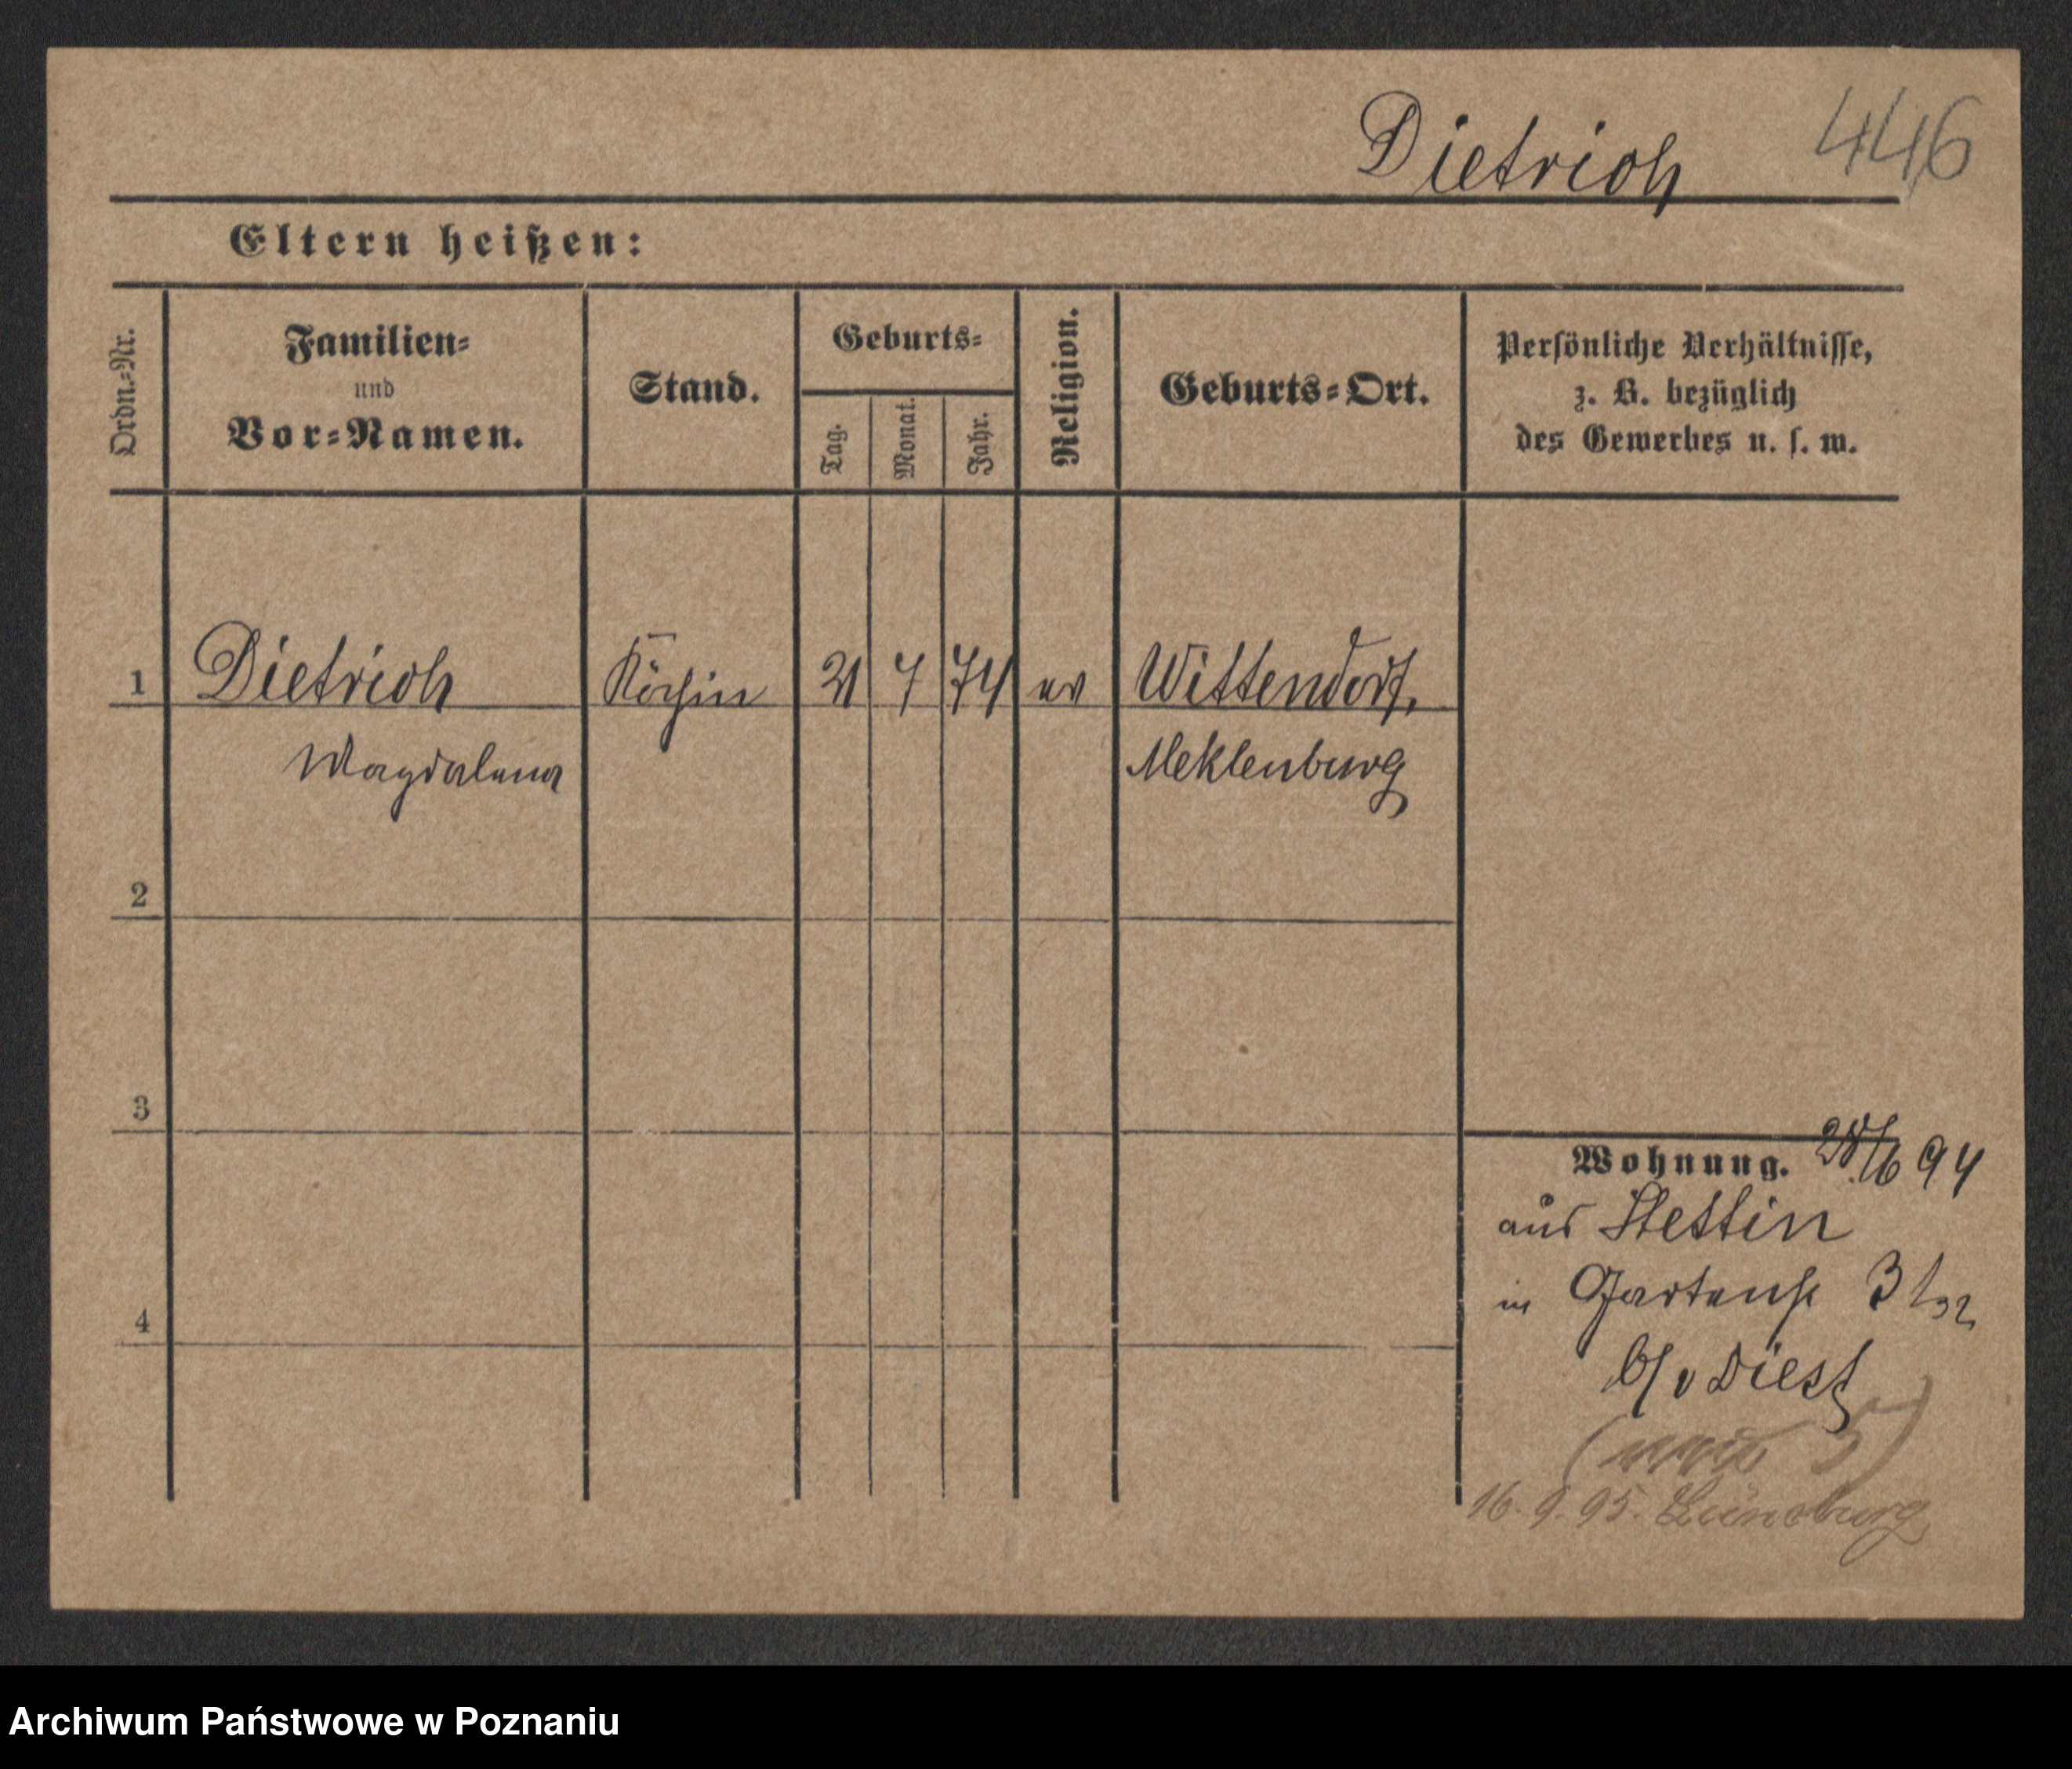 Dietrich 446
Eltern heißen:
Ordn.-Nr.
Familien-
und
Vor-Namen.
Stand.
Geburts-
Tag.
Monat.
Jahr.
Religion.
Geburts-Ort.
Persönliche Verhältnisse,
z. B. bezüglich
des Gewerbes u. s. w.
1 Dietrich Köchin 21 7 74 ev Wittendorf,
Magdalena Meklenburg
2
3
4
Wohnung. 28/6 94
aus Stettin
in Gartenst 3
b/v Diest
16. 9. 95. Lüneburg
Archiwum Państwowe w Poznaniu